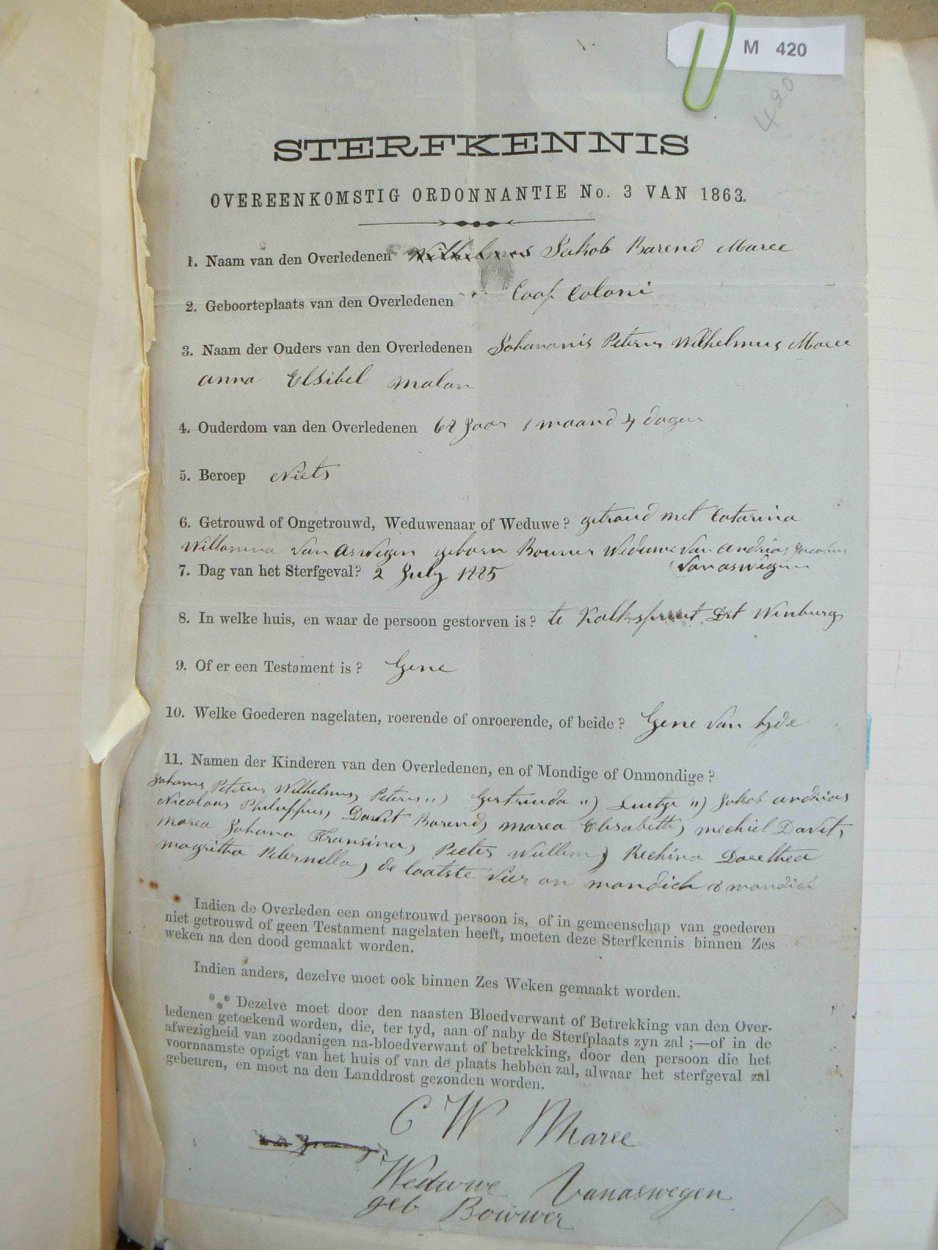 M 420
490
STERFKENNIS
OVEREENKOMSTIG ORDONNANTIE No. 3 VAN 1863.
1. Naam van den Overledenen Wilhelmus Jakob Barend Maree
2. Geboorteplaats van den Overledenen Coof Coloni
3. Naam der Ouders van den Overledenen Johananis Peterus Wilhelmus Maree
anna Elsibel malan
4. Ouderdom van den Overledenen Jaar 1 maand 4 dagen
5. Beroep Niets
6. Getrouwd of Ongetrouwd, Weduwenaar of Weduwe? getroud met Catarina
Willomina van aswegen geborn Bouwer Weduwe van andrias Jacobus
Vanaswegen
7. Dag van het Sterfgeval? 2 July 1885
8. In welke huis, en waar de persoon gestorven is? te Kalkspruit Dst Winburg
9. Of er een Testament is? Gene
10. Welke Goederen nagelaten, roerende of onroerende, of beide? Gene van byde
11. Namen der Kinderen van den Overledenen, en of Mondige of Onmondige?
Peterus Wilhelmus, Peterus ,,) Gertruida ,,) ,,) Jakob andrias
Nicolaas Philuppus, Davit Barend, marea Elisabeth, mechiel Davit,
marea Johana Fransina, Pieter Wullem, Rechina Dorethea
magritha Peternella, de laatste vier on mondich & mondich
Indien de Overleden een ongetrouwd persoon is, of in gemeenschap van goederen
niet getrouwd of geen Testament nagelaten heeft, moeten deze Sterfkennis binnen Zes
weken na den dood gemaakt worden.
Indien anders, dezelve moet ook binnen Zes Weken gemaakt worden.
*** Dezelve moet door den naasten Bloedverwant of Betrekking van den Over-
ledenen geteekend worden, die, ter tyd, aan of naby de Sterfplaats zyn zal ;—of in de
afwezigheid van zoodanigen na-bloedverwant of betrekking, door den persoon die het
voornaamste opzigt van het huis of van de plaats hebben zal, alwaar het sterfgeval zal
gebeuren, en moet na den Landdrost gezonden worden.
C W Maree
Weduwe Vanaswegen
geb Bouwer